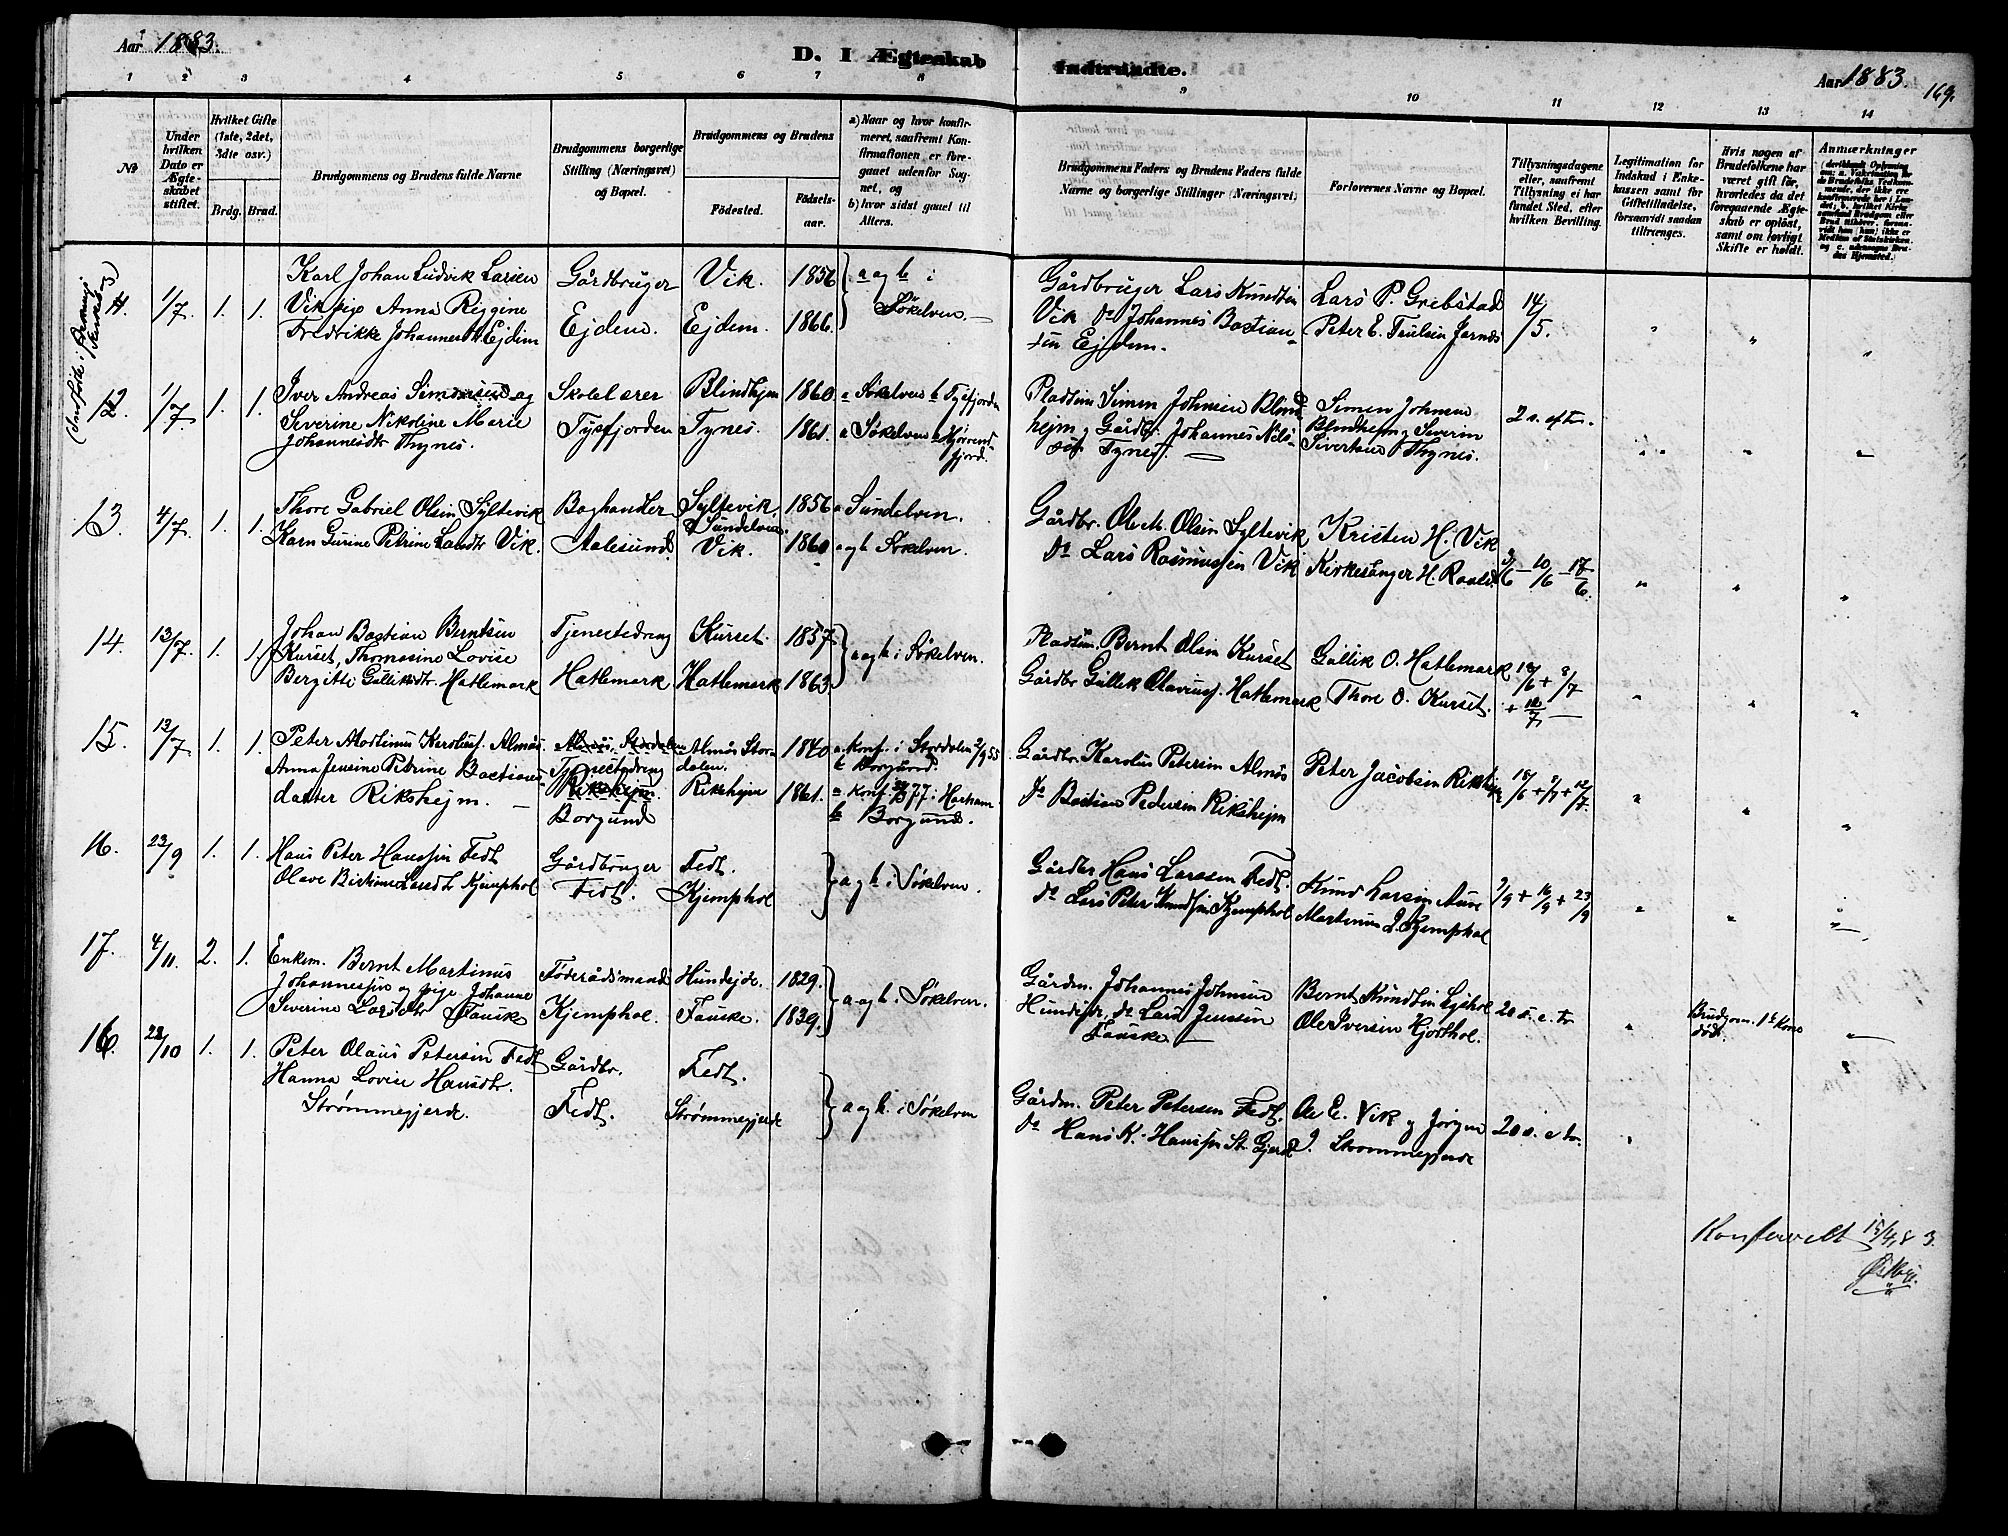 Aar 1883.
D. I Ægteskab
Indtraadte.
Aar 1883.
169.
1 2 3 4 5 6 7 8 9 10 11 12 13 14
No
Under hvilken Dato er Ægteskabet stiftet.
Hvilket Gifte (1ste, 2det, 3die osv.)
Brdg. Brud.
Brudgommens og Brudens fulde Navne
Brudgommens borgerlige Stilling (Næringsvei) og Bopæl.
Brudgommens og Brudens
Fødested.
Fødselsaar.
a) Naar og hvor konfirmeret, saafremt Konfirmationen er foregaaet udenfor Sognet, og
b) hvor sidst gaaet til Alters.
Brudgommens Faders og Brudens Faders fulde Navne og borgerlige Stillinger (Næringsvei)
Forlovernes Navne og Bopæl.
Tillysningsdagene eller, saafremt Tillysning ei har fundet Sted, efter hvilken Bevilling.
Legitimation for Indskud i Enkekassen samt for Giftetilladelse, forsaavidt saadan tiltrænges.
Hvis nogen af Brudefolkene har været gift før, hvorledes da det foregaaende Ægteskab er opløst, samt om lovligt Skifte er holdt.
Anmærkninger
11. 1/7 1. 1. Karl Johan Ludvik Larsen
Vik, pige Anna Reggine
Fredrikke Johannesdt Ejdem
Gårdbruger
Ejdem.
Vik. 1856
Ejdem. 1866.
a og b i
Søkelven.
Gårdbruger Lars Knudsen
Vik do Johannes Bastian-
sen Ejdem.
Lars P. Grebstad
Peter E. Jarnes
14/5.
12. 1/7 1. 1. Iver Andreas Simonsen og
Severine Nikoline Marie
Johannesdtr Thynes.
Skolelærer
Tysfjorden
Blindhejm 1860
Tynes. 1861.
a Søkelven b Tysfjorden
a Søkelven b Hjørend-
fjord.
Pladsm. Simen Johnsen Blind-
hejm, Gårdbr. Johannes Nils-
sen Tynes.
Simen Johnsen
Blindhejm, Severin
Sivertsen Thynes.
13. 4/7 1. 1. Thore Gabriel Olsen Syltevik
Karn Gurine Petrine Larsdtr Vik.
Boghandler
Aalesund
Syltevik 1856
Sundelven
Vik. 1860
a Sundelven.
a og b Søkelven.
Gårdbr. Ole M. Olsen Syltevik
do Lars Rasmussen Vik
Kristen H. Vik
Kirkesanger H.
3/6 - 10/6 - 17/6.
14. 13/7 1. 1. Johan Bastian Berntsen
Kurset, Thomasine Lovise
Bergitte Gullikdtr. Hatlemark
Tjenestedreng
Hatlemark
Kurset. 1857
Hatlemark 1863
a og b i Søkelven.
Pladsm. Bernt Olsen Kurset
Gårdbr Gullik Olaviuss. Hatlemark
Gullik O. Hatlemark
Thore O. Kurset.
18/6 + 8/7
+ 12/7
15. 13/7 1. 1. Peter Martinus Karolusf. Almås
Anna Jensine Petrine Bastians-
datter Rikshejm.
Almås, Stordalen
Tjenestedreng
Rikshejm
Borgund
Almås Stor- 1840
dalen.
Rikshejm 1861.
a Konf. i Stordalen 2/9 55
b Borgund.
a Konf. 77 i Harham
b Borgund.
Gårdbr. Karolus Petersen Almås
do Bastian Pedersen Rikshejm
Peter Jacobsen Rikshejm
18/6 + 8/7 + 12/7.
16. 23/9 1. 1. Hans Peter Hanssen Fedt
Olave Larsdtr Kjemphol
Gårdbruger
Fedt.
Fedt.
Kjemphol
a og b i Søkelven.
Gårdbr Hans Larssen Fedt.
do Lars Peter Knudsen Kjemphol
Knud Larsen Aure
Martinus L. Kjemphol
9/9 + 16/9 + 23/9
17. 4/11. 2. 1. Enkem. Bernt Martinus
Johannessen og pige Johanne
Severine Larsdtr Fauske
Føderådsmand
Kjemphol.
Hundejde. 1829.
Fauske. 1839.
a og b i Søkelven.
Gårdm. Johannes Johnsen
Hundejde, do Lars Jenssen
Fauske
Bernt Knudsen Lyshol
Ole Iversen Hjorthol.
20 s. e. tr
Brudgom. 1e Kone
død.
16. 28/10 1. 1. Peter Olaus Petersen Fedt
Hanna Lovise Hansdtr.
Strømmegjerde.
Gårdbr.
Fedt.
Fedt.
Strømmegjerde
a og b. i Søkelven
Gårdm. Peter Petersen Fedt.
do Hans K. Hanssen St. Gjerde
Ole E. Vik og Jørgen
J. Strømmegjerde
20 s. e tr.
15/4 83.